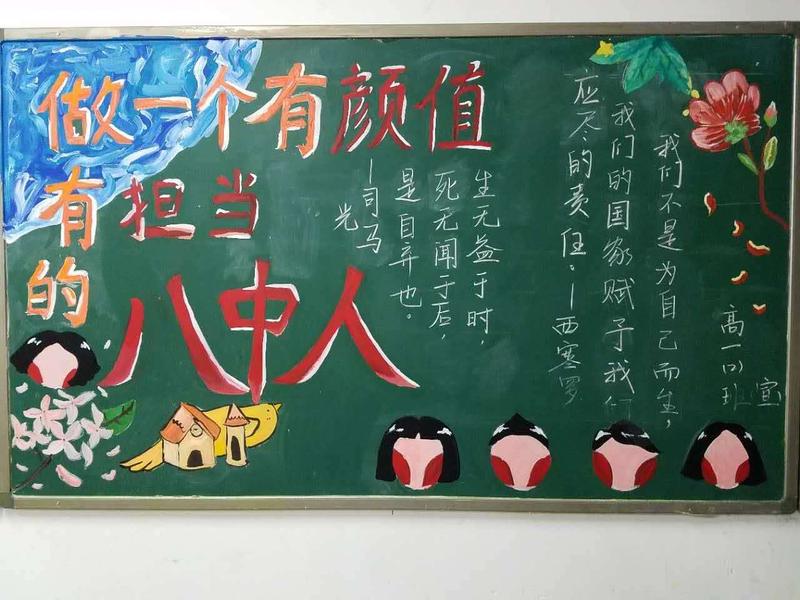 做一个有颜值
有担当
的八中人
生无益于时，
死无闻于后，
是自弃也。
—司马
光
我们不是为自己而生，
我们的国家赋予我们
应尽的责任。—西塞罗
高一(1)
班 宣